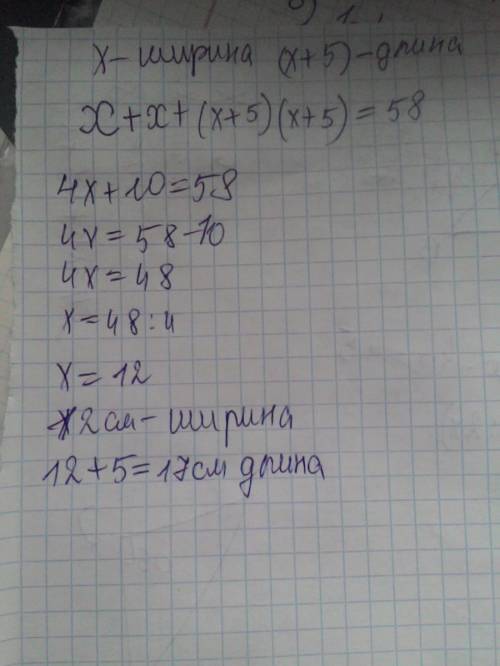 х - ширина (х+5) - длина
х+х+(х+5)(х+5)=58
4х+10=58
4х=58-10
4х=48
х=48:4
х=12
12см - ширина
12+5=17см длина